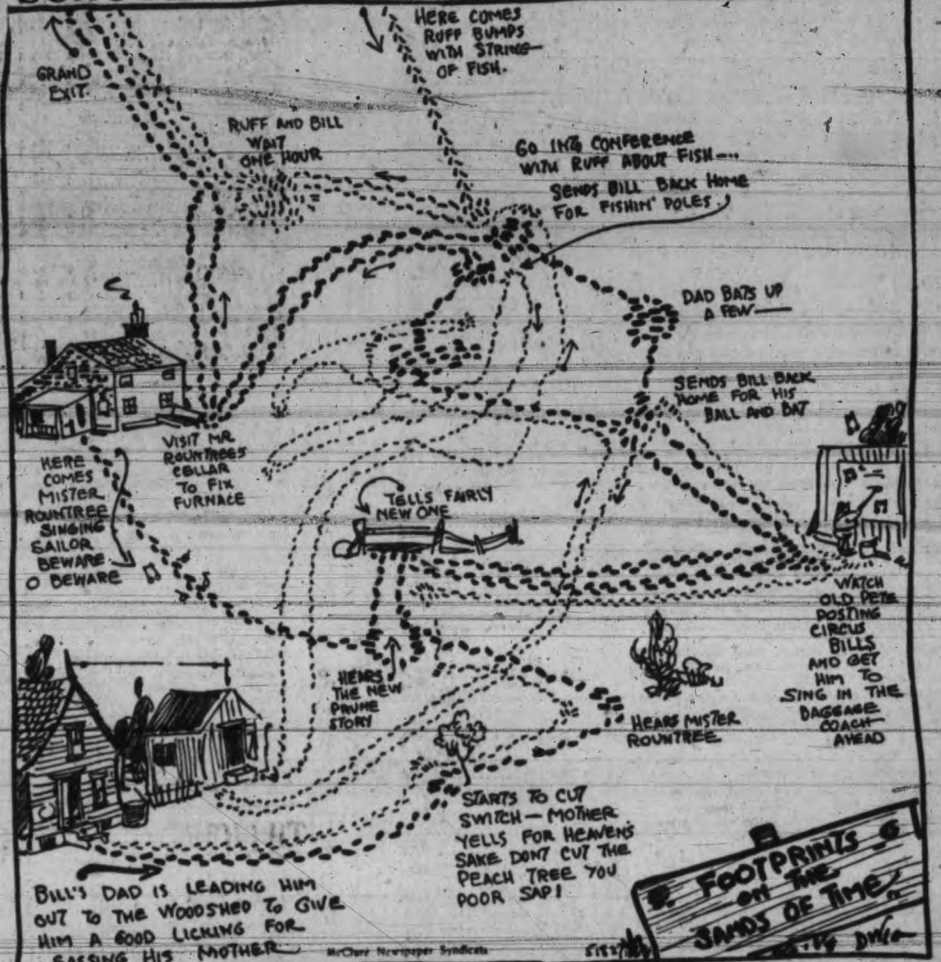 HERE COMES
RUFF BUMPS
WITH STRING
OF FISH.
GRAND
EXIT.
RUFF AND BILL
WAIT
ONE HOUR
GO INTO CONFERENCE
WITH RUFF ABOUT FISH----
SENDS BILL BACK HOME
FOR FISHIN' POLES
DAD BATS UP
A FEW—
SENDS BILL BACK
HOME FOR HIS
BALL AND BAT
VISIT MR.
ROUNTREES
CELLAR
TO FIX
FURNACE
HERE
COMES
MISTER
ROUNTREE
SINGING
SAILOR
BEWARE
O BEWARE
TELLS FAIRLY
NEW ONE
WATCH
OLD PETE
POSTING
CIRCUS
BILLS
AND GET
HIM TO
SING IN THE
BAGGAGE
COACH
AHEAD
HEARS
THE NEW
PRUNE
STORY
HEARS MISTER
ROUNTREE
STARTS TO CUT
SWITCH — MOTHER
YELLS FOR HEAVENS
SAKE DON'T CUT THE
PEACH TREE YOU
POOR SAP!
BILL'S DAD IS LEADING HIM
OUT TO THE WOODSHED TO GIVE
HIM A GOOD LICKING FOR
SASSING HIS MOTHER
McClure Newspaper Syndicate
FOOTPRINTS
ON THE
SANDS OF TIME
DWIG